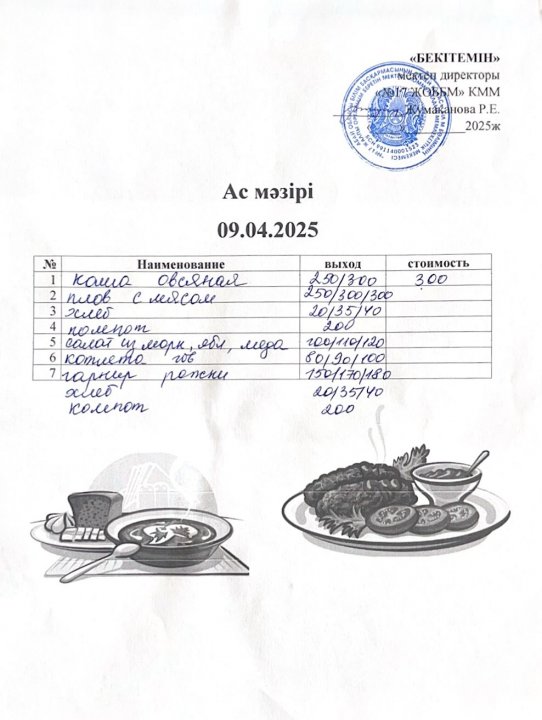 «БЕКІТЕМІН»
мектеп директоры
«№17 ЖОББМ» КММ
Жумаканова Р.Е.
2025ж
Ас мәзірі
09.04.2025
№ Наименование выход стоимость
1 каша овсяная 250/300 300
2 плов с мясом 250/300/300
3 хлеб 20/35/40
4 компот 200
5 салат из морк, ябл, меда 100/110/120
6 котлета гов 80/90/100
7 гарнир рожки 150/170/180
хлеб 20/35/40
компот 200